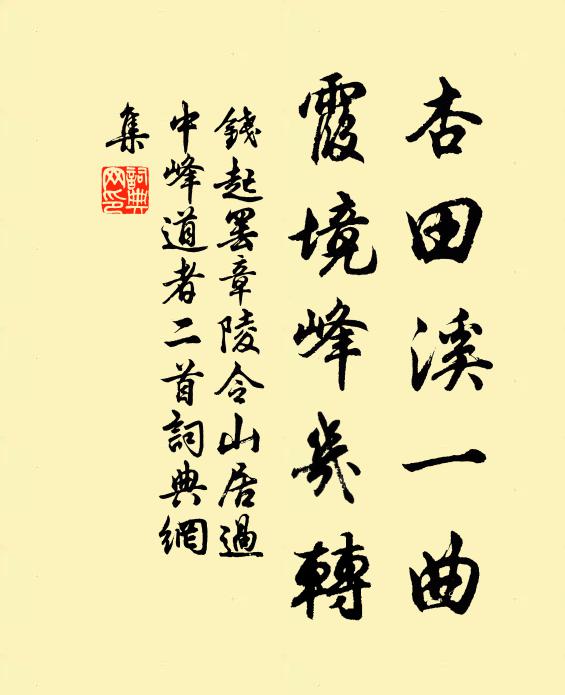 杏田溪一曲
霞境峰幾轉
錢起罷章陵令山居過
中峰道者二首詞典網
集
詞典
网印